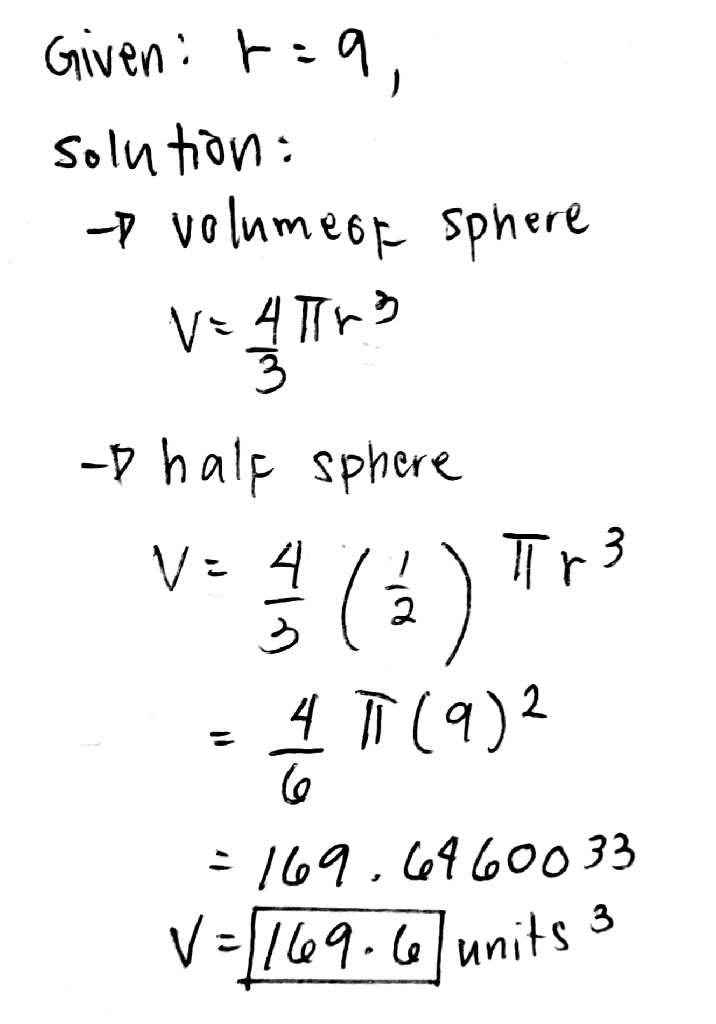 Given: r = 9,
Solution:
→ volume of sphere
V = 4/3 πr³
→ half sphere
V = 4/3 (1/2) πr³
= 4/6 π(9)²
= 169.6460033
V = 169.6 units³